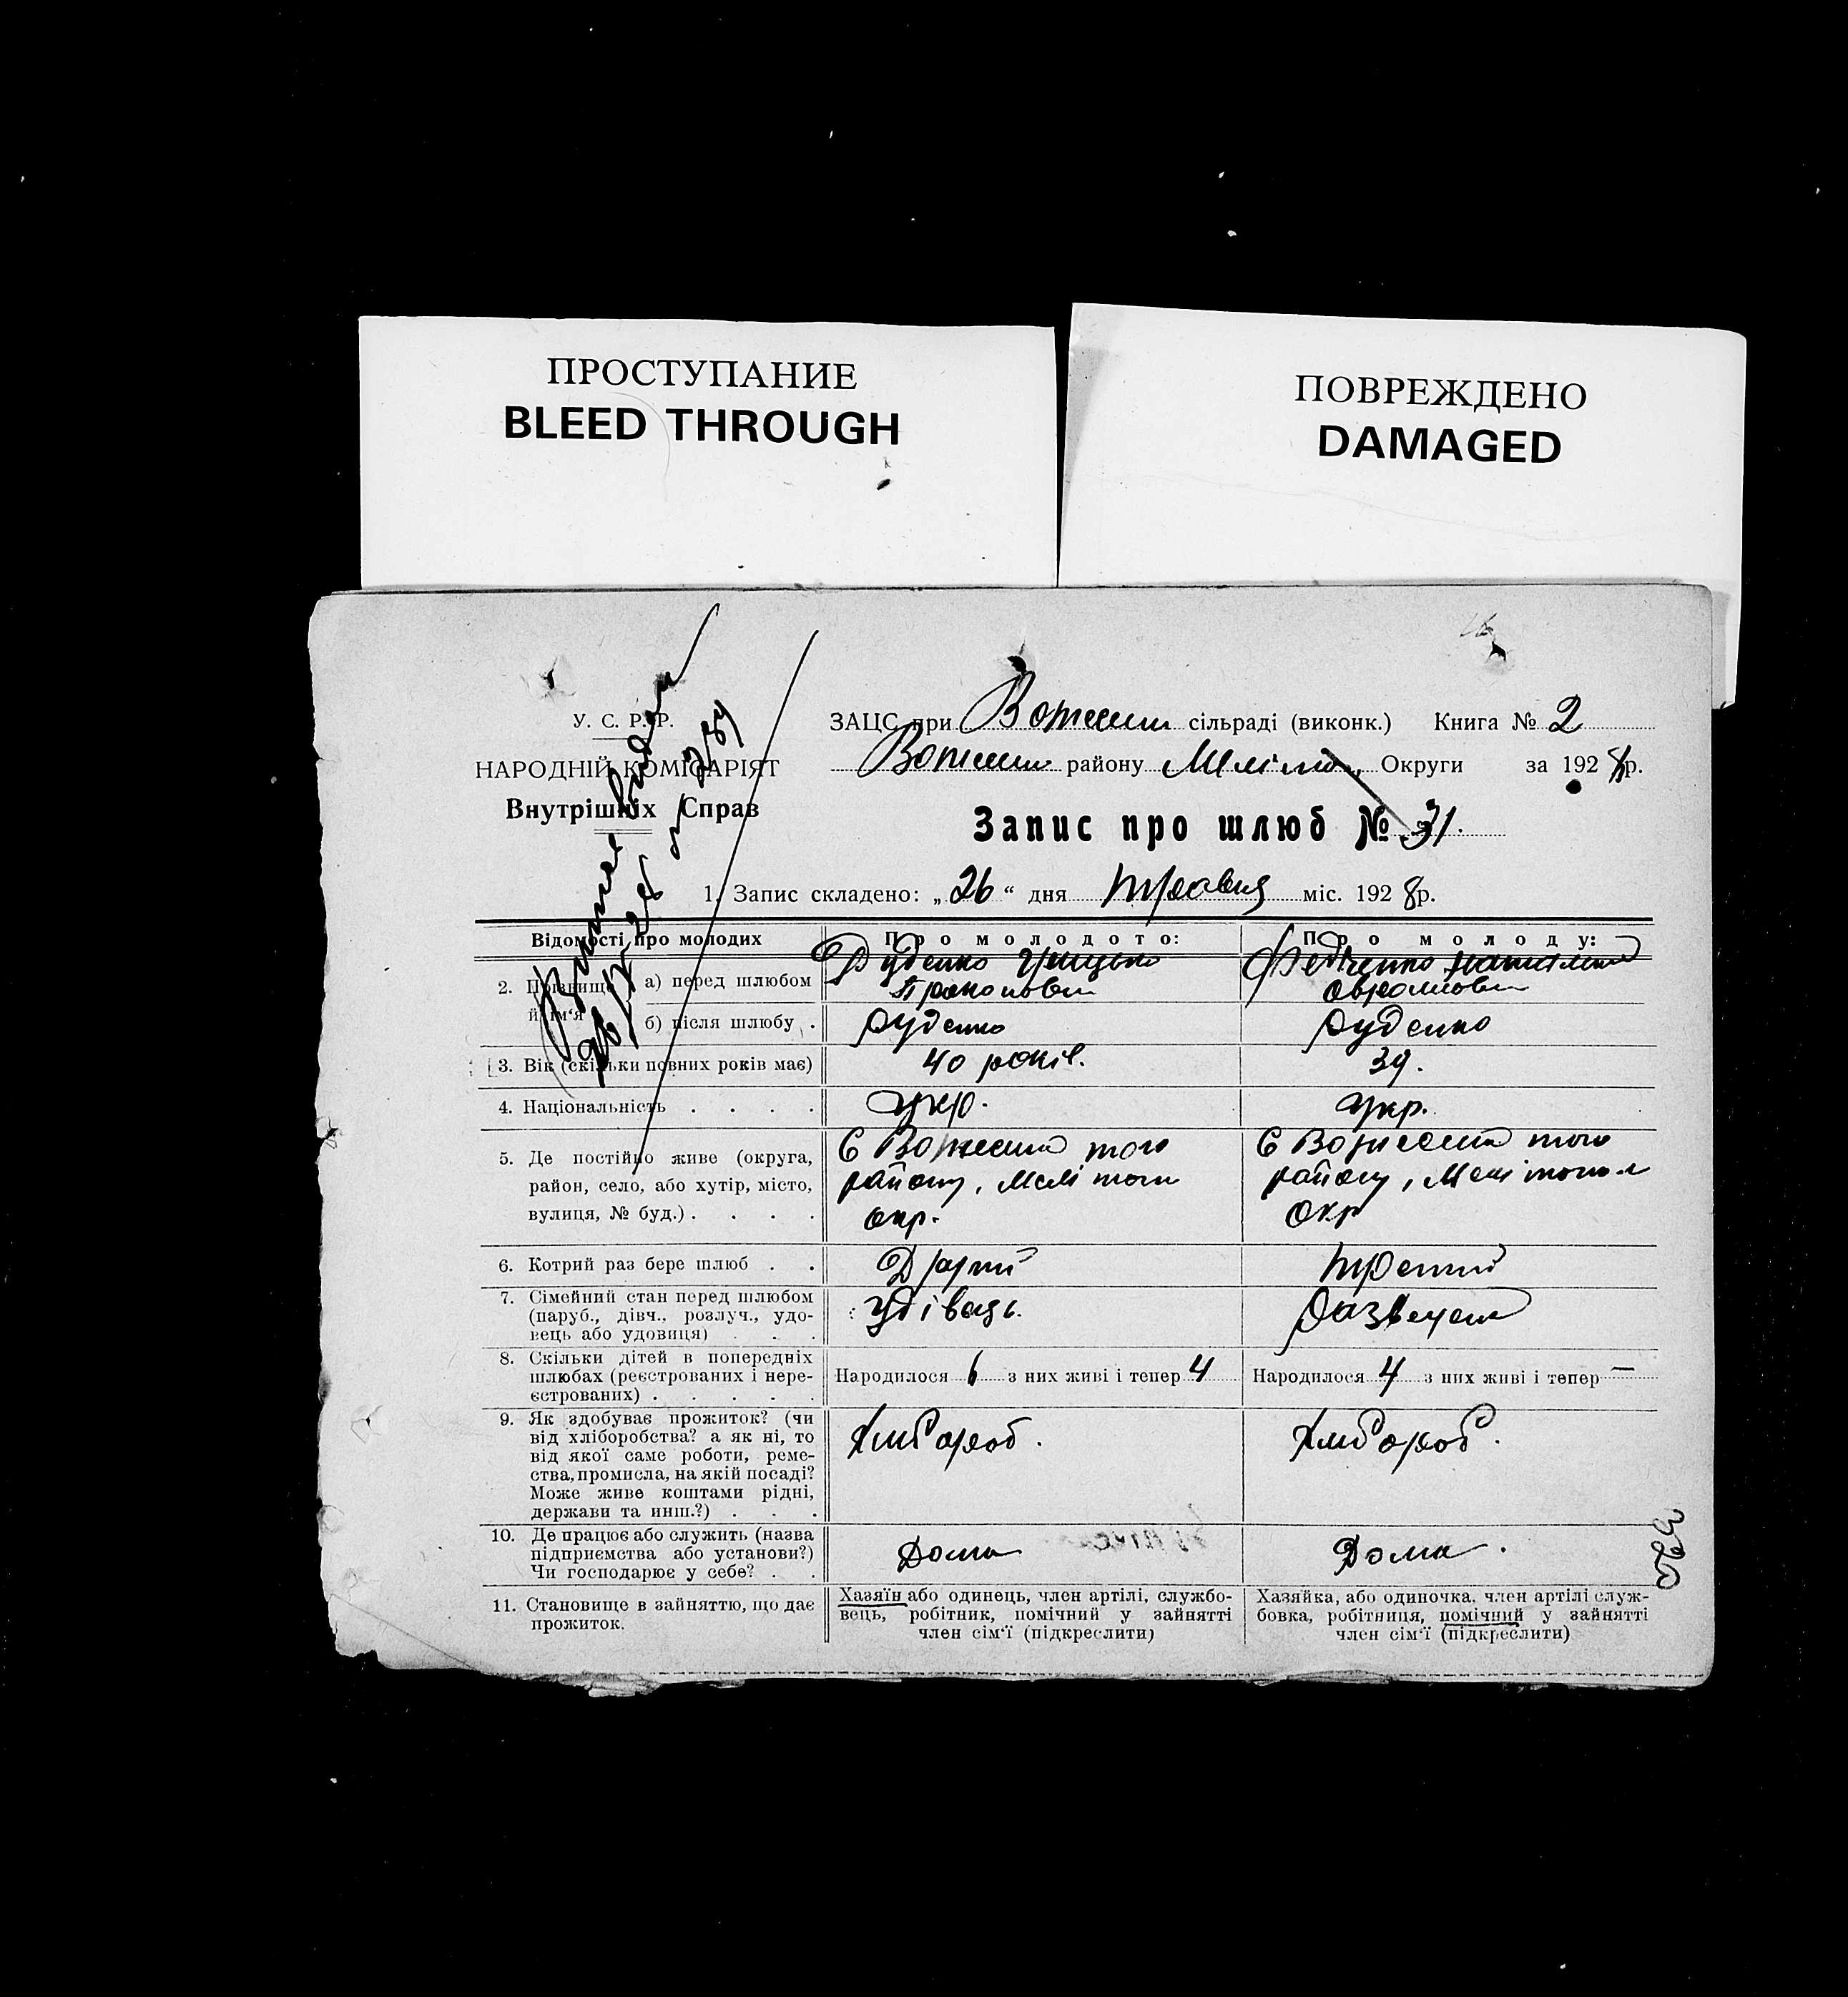 ПРОСТУПАНИЕ
BLEED THROUGH
ПОВРЕЖДЕНО
DAMAGED
У. С. Р. Р.
НАРОДНІЙ КОМІСАРІЯТ
Внутрішніх Справ
ЗАЦС при сільраді (виконк.) Книга № 2
району Округи за 1928р.
Запис про шлюб № 31.
1. Запис складено: „26“ дня травня міс. 1928р.
Відомості про молодих
Про молодого:
Про молоду:
2. Прізвище й ім'я
а) перед шлюбом
Руденко Грицько
Прокопович
Федченко
б) після шлюбу .
Руденко
Руденко
3. Вік (скільки повних років має)
40 років.
39.
4. Національність . . . .
укр.
укр.
5. Де постійно живе (округа,
район, село, або хутір, місто,
вулиця, № буд.) . . . .
С того
району, Мелітоп
окр.
С того
району, Мелітопол
Окр
6. Котрий раз бере шлюб . .
Другий
третий
7. Сімейний стан перед шлюбом
(паруб., дівч., розлуч., удо-
вець або удовиця) . . .
удівець.
8. Скільки дітей в попередніх
шлюбах (реєстрованих і нере-
єстрованих) . . . . .
Народилося 6 з них живі і тепер 4
Народилося 4 з них живі і тепер —
9. Як здобуває прожиток? (чи
від хліборобства? а як ні, то
від якої саме роботи, реме-
ства, промисла, на якій посаді?
Може живе коштами рідні,
держави та инш.?) . . .
Хлібороб.
Хлібороб.
10. Де працює або служить (назва
підприємства або установи?)
Чи господарює у себе? . .
Дома
Дома.
11. Становище в зайняттю, що дає
прожиток.
Хазяїн або одинець, член артілі, службо-
вець, робітник, помічний у зайнятті
член сім'ї (підкреслити)
Хазяйка, або одиночка, член артілі служ-
бовка, робітниця, помічний у зайнятті
член сім'ї (підкреслити)